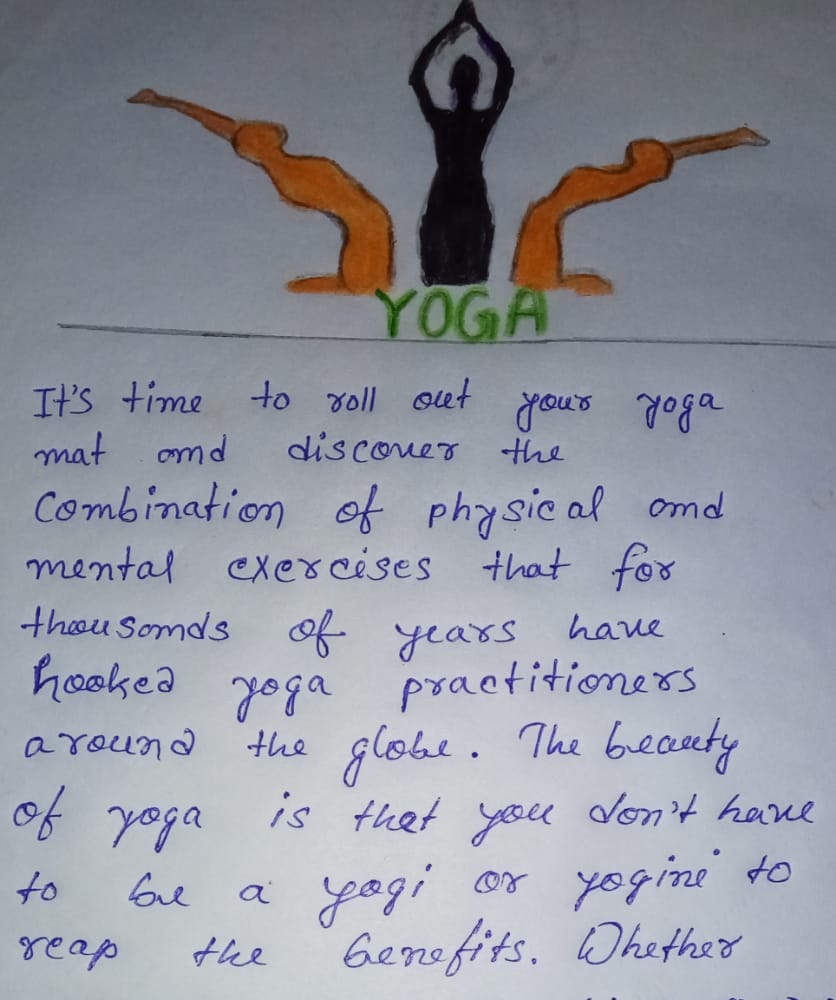 YOGA
It's time to roll out your yoga
mat and discover the
Combination of physical and
mental exercises that for
thousands of years have
hooked yoga practitioners
around the globe. The beauty
of yoga is that you don't have
to be a yogi or yogini to
reap the benefits. Whether